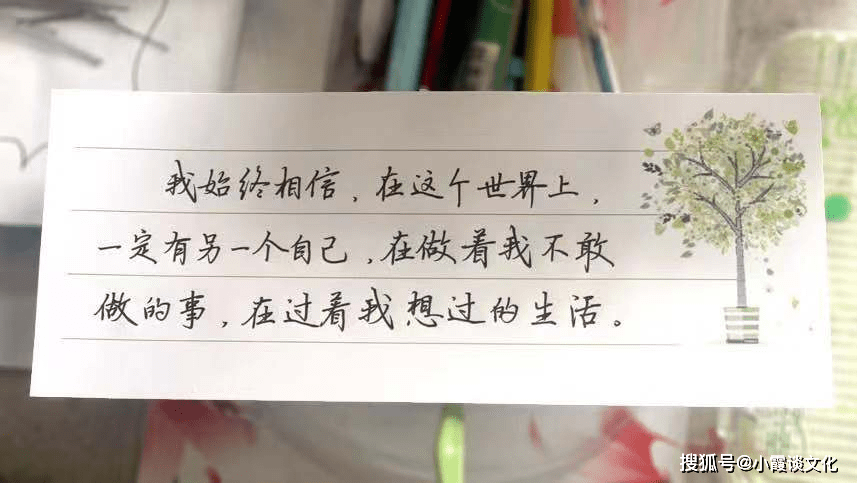 我始终相信，在这个世界上，
一定有另一个自己，在做着我不敢
做的事，在过着我想过的生活。
搜狐号@小霞谈文化